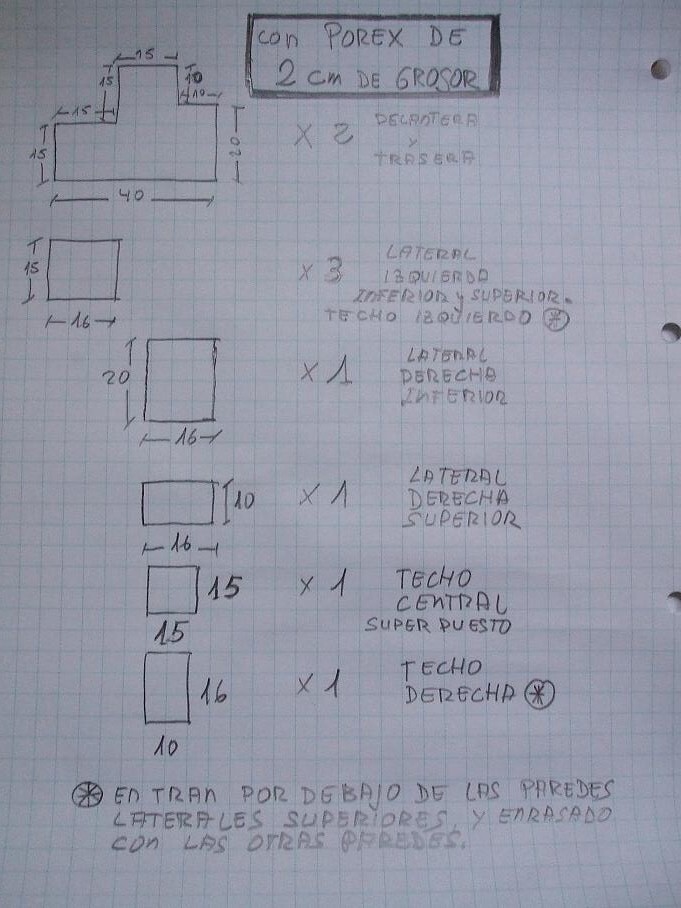 con POREX DE
2 cm DE GROSOR
15
15
10
15
10
15
20
40
x 2
DELANTERA
Y
TRASERA
15
16
x 3
LATERAL
IZQUIERDA
INFERIOR y SUPERIOR.
TECHO IZQUIERDO *
20
16
x 1
LATERAL
DERECHA
INFERIOR
10
16
x 1
LATERAL
DERECHA
SUPERIOR
15
15
x 1
TECHO
CENTRAL
SUPER PUESTO
16
10
x 1
TECHO
DERECHA *
* ENTRAN POR DEBAJO DE LAS PAREDES
LATERALES SUPERIORES, Y ENRASADO
CON LAS OTRAS PAREDES.